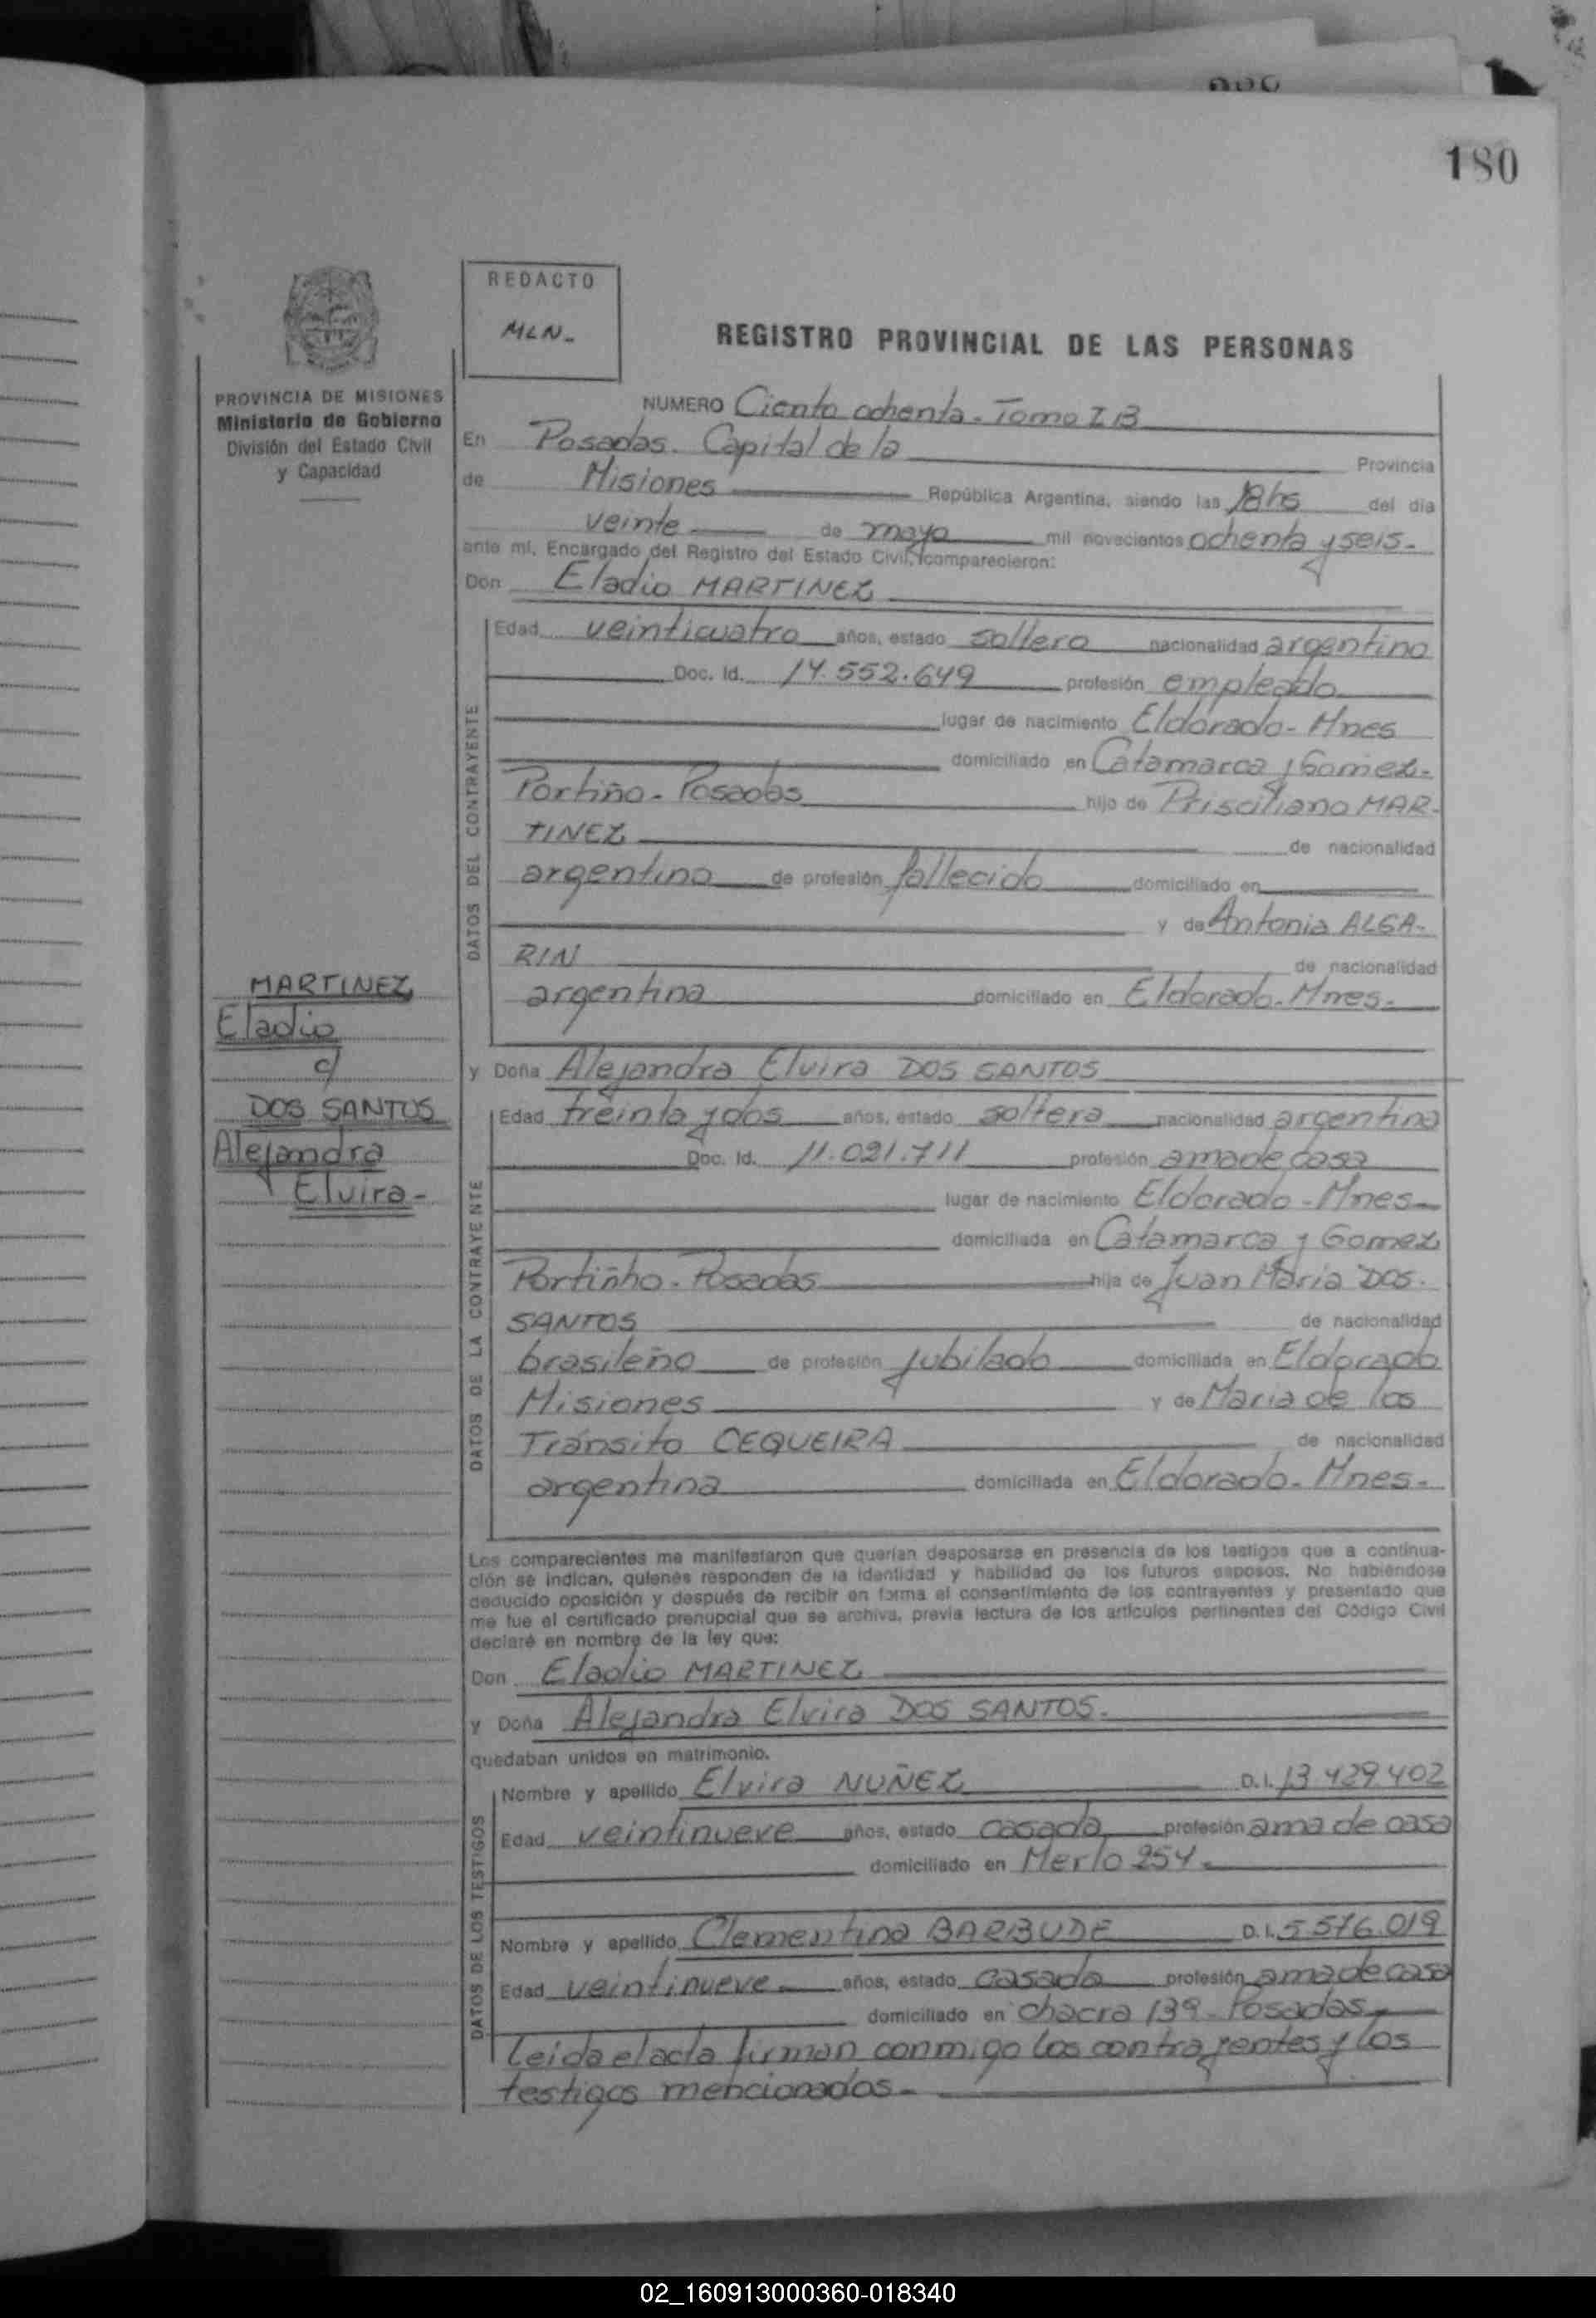 180
REDACTO
MLN-
REGISTRO PROVINCIAL DE LAS PERSONAS
PROVINCIA DE MISIONES
Ministerio de Gobierno
División del Estado Civil
y Capacidad
NUMERO Ciento ochenta - Tomo I B
En Posadas. Capital de la Provincia
de Misiones República Argentina, siendo las 18hs del día
veinte de mayo mil novecientos ochenta y seis-
ante mí, Encargado del Registro del Estado Civil, comparecieron:
Don Eladio MARTINEZ
DATOS DEL CONTRAYENTE
Edad veinticuatro años, estado soltero nacionalidad argentino
Doc. Id. 14.552.649 profesión empleado
lugar de nacimiento Eldorado - Mnes
domiciliado en Catamarca y Gomez-
Portiño - Posadas hijo de Prisciliano MAR-
TINEZ de nacionalidad
argentino de profesión fallecido domiciliado en
y de Antonia ALGA-
RIN de nacionalidad
argentina domiciliado en Eldorado - Mnes-
MARTINEZ
Eladio
c/
DOS SANTOS
Alejandra
Elvira-
y Doña Alejandra Elvira DOS SANTOS
DATOS DE LA CONTRAYENTE
Edad treinta y dos años, estado soltera nacionalidad argentina
Doc. Id. 11.021.711 profesión ama de casa
lugar de nacimiento Eldorado - Mnes-
domiciliada en Catamarca y Gomez
Portiñho - Posadas hija de Juan María DOS.
SANTOS de nacionalidad
brasileño de profesión jubilado domiciliada en Eldorado
Misiones y de Maria de los
Tránsito CEQUEIRA de nacionalidad
argentina domiciliada en Eldorado - Mnes-
Los comparecientes me manifestaron que querían desposarse en presencia de los testigos que a continua-
ción se indican, quienes responden de la identidad y habilidad de los futuros esposos. No habiéndose
deducido oposición y después de recibir en forma el consentimiento de los contrayentes y presentado que
me fue el certificado prenupcial que se archiva, previa lectura de los artículos pertinentes del Código Civil
declaré en nombre de la ley que:
Don Eladio MARTINEZ
y Doña Alejandra Elvira DOS SANTOS.
quedaban unidos en matrimonio.
DATOS DE LOS TESTIGOS
Nombre y apellido Elvira NUÑEZ D.I. 13.429.402
Edad veintinueve años, estado casada profesión ama de casa
domiciliado en Merlo 254-
Nombre y apellido Clementina BARBUDE D.I. 5.576.019
Edad veintinueve años, estado casada profesión ama de casa
domiciliado en chacra 139 - Posadas-
Leida el acta firman conmigo los contrayentes y los
testigos mencionados-
02_160913000360-018340